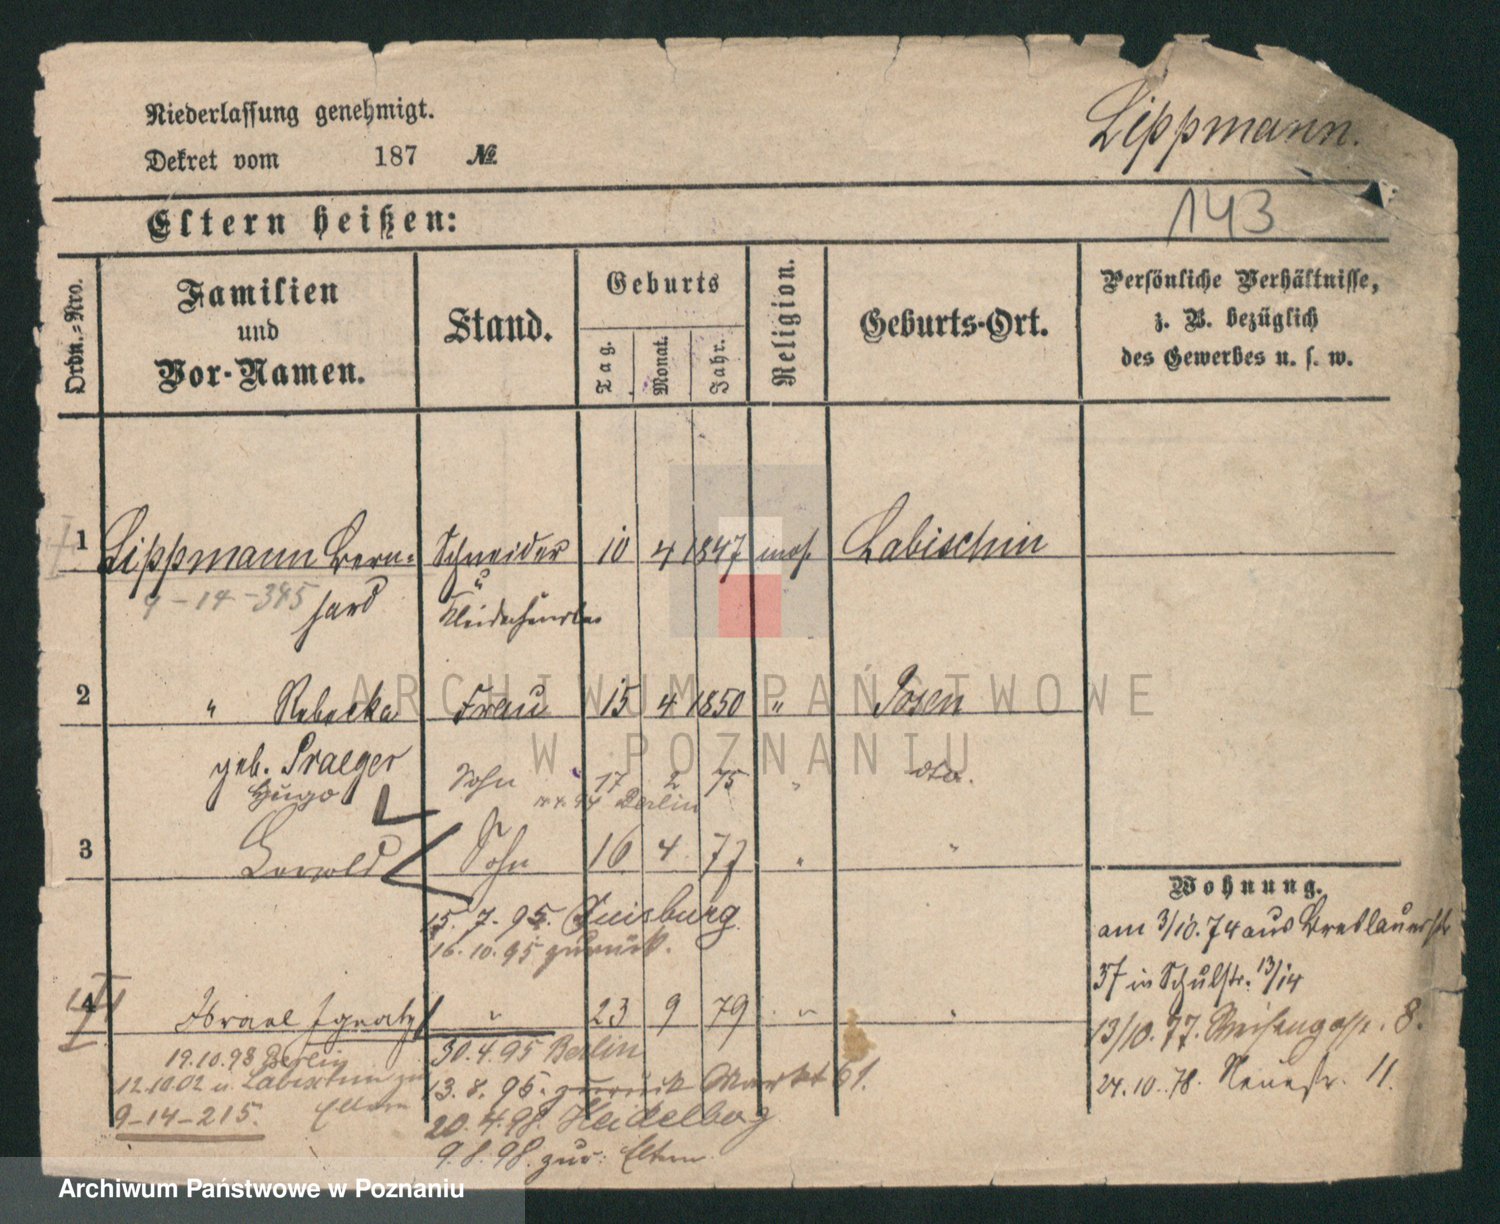 Niederlassung genehmigt.
Dekret vom 187 №
Lippmann.
143
Eltern heißen:
Ordn.-Nro.
Familien
und
Vor-Namen.
Stand.
Geburts
Tag.
Monat.
Jahr.
Religion.
Geburts-Ort.
Persönliche Verhältnisse,
z. B. bezüglich
des Gewerbes u. s. w.
1 Lippmann Bern- Schneider 10 4 1847 mos. Labischin
hard
9-14-345
2 " Rebecka Frau 15 4 1850 " Posen
geb. Praeger
Hugo Sohn 17 2 75 " dto.
Berlin
3 Sohn 16 4 77 " "
15.7.95. Duisburg
16.10.95 zurück.
4 Israel Ignatz " 23 9 79 " "
19.10.93 Berlin
12.10.02 u. Labischin zu
Eltern
9-14-215.
30.4.95 Berlin
13.8.95. zurück Markt 61.
20.4.98. Heidelberg
9.8.98. zur: Eltern
Wohnung.
am 3/10.74 aus Breslauerstr
37 in Schulstr. 13/14
13/10.77. 8.
24.10.78. Neuestr. 11.
ARCHIWUM PAŃSTWOWE
W POZNANIU
Archiwum Państwowe w Poznaniu